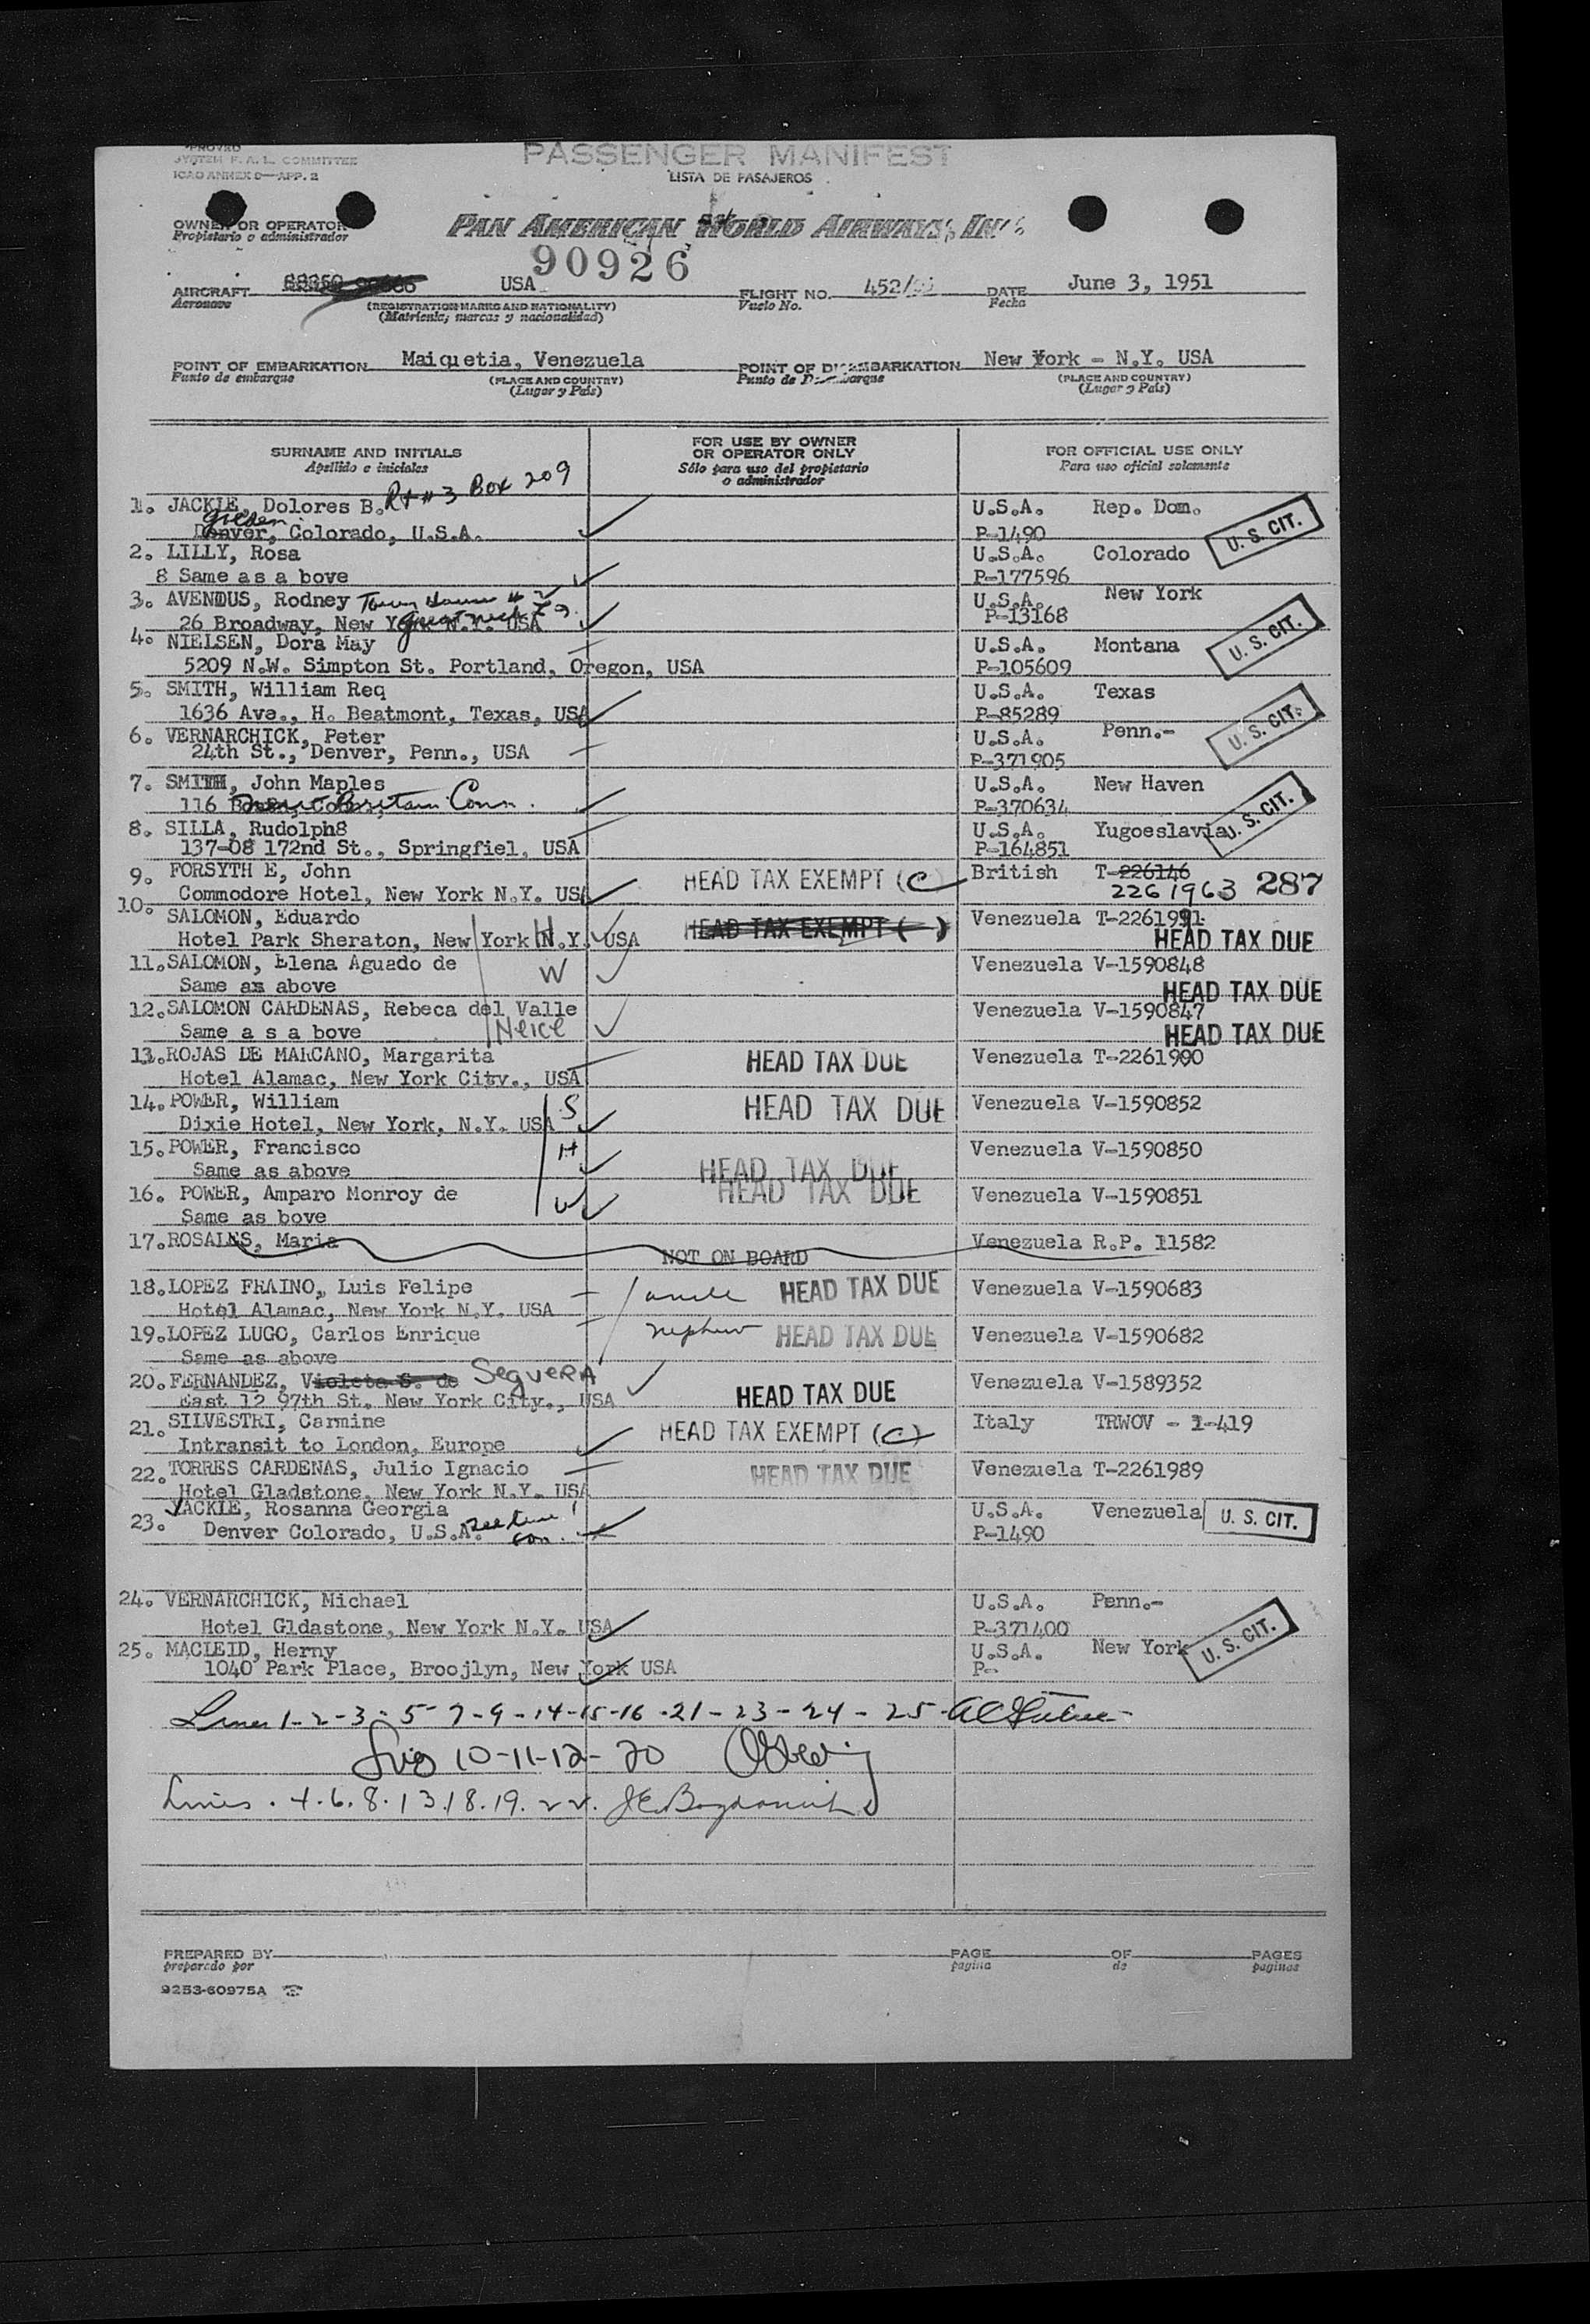 SYSTEM F. A. L. COMMITTEE
ICAO ANNEX 9—APP. 2
PASSENGER MANIFEST
LISTA DE PASAJEROS
OWNER OR OPERATOR
Propietario o administrador
PAN AMERICAN WORLD AIRWAYS, INC
90926
AIRCRAFT USA FLIGHT NO. 452/ DATE June 3, 1951
Aeronave (REGISTRATION MARKS AND NATIONALITY) Vuelo No. Fecha
(Matricula; marcas y nacionalidad)
POINT OF EMBARKATION Maiquetia, Venezuela POINT OF DISEMBARKATION New York - N.Y. USA
Punto de embarque (PLACE AND COUNTRY) Punto de Desembarque (PLACE AND COUNTRY)
(Lugar y Pais) (Lugar y Pais)
SURNAME AND INITIALS FOR USE BY OWNER OR OPERATOR ONLY FOR OFFICIAL USE ONLY
Apellido e iniciales Sólo para uso del propietario o administrador Para uso oficial solamente
1. JACKIE, Dolores B. Rt #3 Box 209 U.S.A. Rep. Dom.
Golden
Denver, Colorado, U.S.A. P-1490 U. S. CIT.
2. LILLY, Rosa U.S.A. Colorado
8 Same as a bove P-177596
3. AVENDUS, Rodney U.S.A. New York
26 Broadway, New York N.Y. USA P-13168
4. NIELSEN, Dora May U.S.A. Montana U. S. CIT.
5209 N.W. Simpton St. Portland, Oregon, USA P-105609
5. SMITH, William Req U.S.A. Texas
1636 Ave., H. Beatmont, Texas, USA P-85289
6. VERNARCHICK, Peter U.S.A. Penn.- U. S. CIT.
24th St., Denver, Penn., USA P-371905
7. SMITH, John Maples U.S.A. New Haven
116 New Britain Conn. P-370634 U. S. CIT.
8. SILLA, Rudolph8 U.S.A. Yugoeslavia
137-08 172nd St., Springfiel, USA P-164851
9. FORSYTH E, John HEAD TAX EXEMPT (C) British T-226146
Commodore Hotel, New York N.Y. USA 2261963 287
10. SALOMON, Eduardo HEAD TAX EXEMPT ( ) Venezuela T-2261991
Hotel Park Sheraton, New York N.Y. USA H HEAD TAX DUE
11. SALOMON, Elena Aguado de W Venezuela V-1590848
Same as above HEAD TAX DUE
12. SALOMON CARDENAS, Rebeca del Valle Venezuela V-1590847
Same a s a bove Neice HEAD TAX DUE
13. ROJAS DE MARCANO, Margarita HEAD TAX DUE Venezuela T-2261990
Hotel Alamac, New York City., USA
14. POWER, William S HEAD TAX DUE Venezuela V-1590852
Dixie Hotel, New York, N.Y. USA
15. POWER, Francisco H Venezuela V-1590850
Same as above HEAD TAX DUE
16. POWER, Amparo Monroy de W HEAD TAX DUE Venezuela V-1590851
Same as bove
17. ROSALES, Maria NOT ON BOARD Venezuela R.P. 11582
18. LOPEZ FRAINO, Luis Felipe uncle HEAD TAX DUE Venezuela V-1590683
Hotel Alamac, New York N.Y. USA
19. LOPEZ LUGO, Carlos Enrique nephew HEAD TAX DUE Venezuela V-1590682
Same as above
20. FERNANDEZ, Violeta S. de SegueRA Venezuela V-1589352
East 12 97th St. New York City., USA HEAD TAX DUE
21. SILVESTRI, Carmine HEAD TAX EXEMPT (C) Italy TRWOV - 1-419
Intransit to London, Europe
22. TORRES CARDENAS, Julio Ignacio HEAD TAX DUE Venezuela T-2261989
Hotel Gladstone, New York N.Y. USA
23. JACKIE, Rosanna Georgia U.S.A. Venezuela U. S. CIT.
Denver Colorado, U.S.A. see line 1 P-1490
24. VERNARCHICK, Michael U.S.A. Penn.-
Hotel Gldastone, New York N.Y. USA P-371400
25. MACLEID, Herny U.S.A. New York U. S. CIT.
1040 Park Place, Broojlyn, New York USA P-
Lines 1-2-3-5-7-9-14-15-16-21-23-24-25
10-11-12-20
Lines . 4.6.8.13.18.19.22. J E Bogdanich
PREPARED BY PAGE OF PAGES
preparado por pagina de paginas
9253-60975A